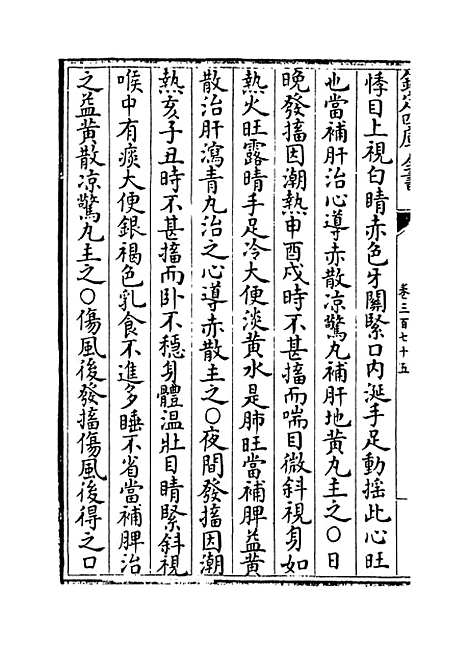 欽定四庫全書
卷三百七十五
悸目上視白睛赤色牙關緊口内涎手足動揺此心旺
也當補肝治心導赤散凉驚丸補肝地黄丸主之○日
晩發搐因潮熱申酉戌時不甚搐而喘目微斜視身如
熱火旺露睛手足冷大便淡黄水是肺旺當補脾益黄
散治肝瀉青丸治之心導赤散主之○夜間發搐因潮
熱亥子丑時不甚搐而卧不穏身體温壯目睛緊斜視
喉中有痰大便銀褐色乳食不進多睡不省當補脾治
之益黄散凉驚丸主之○傷風後發搐傷風後得之口